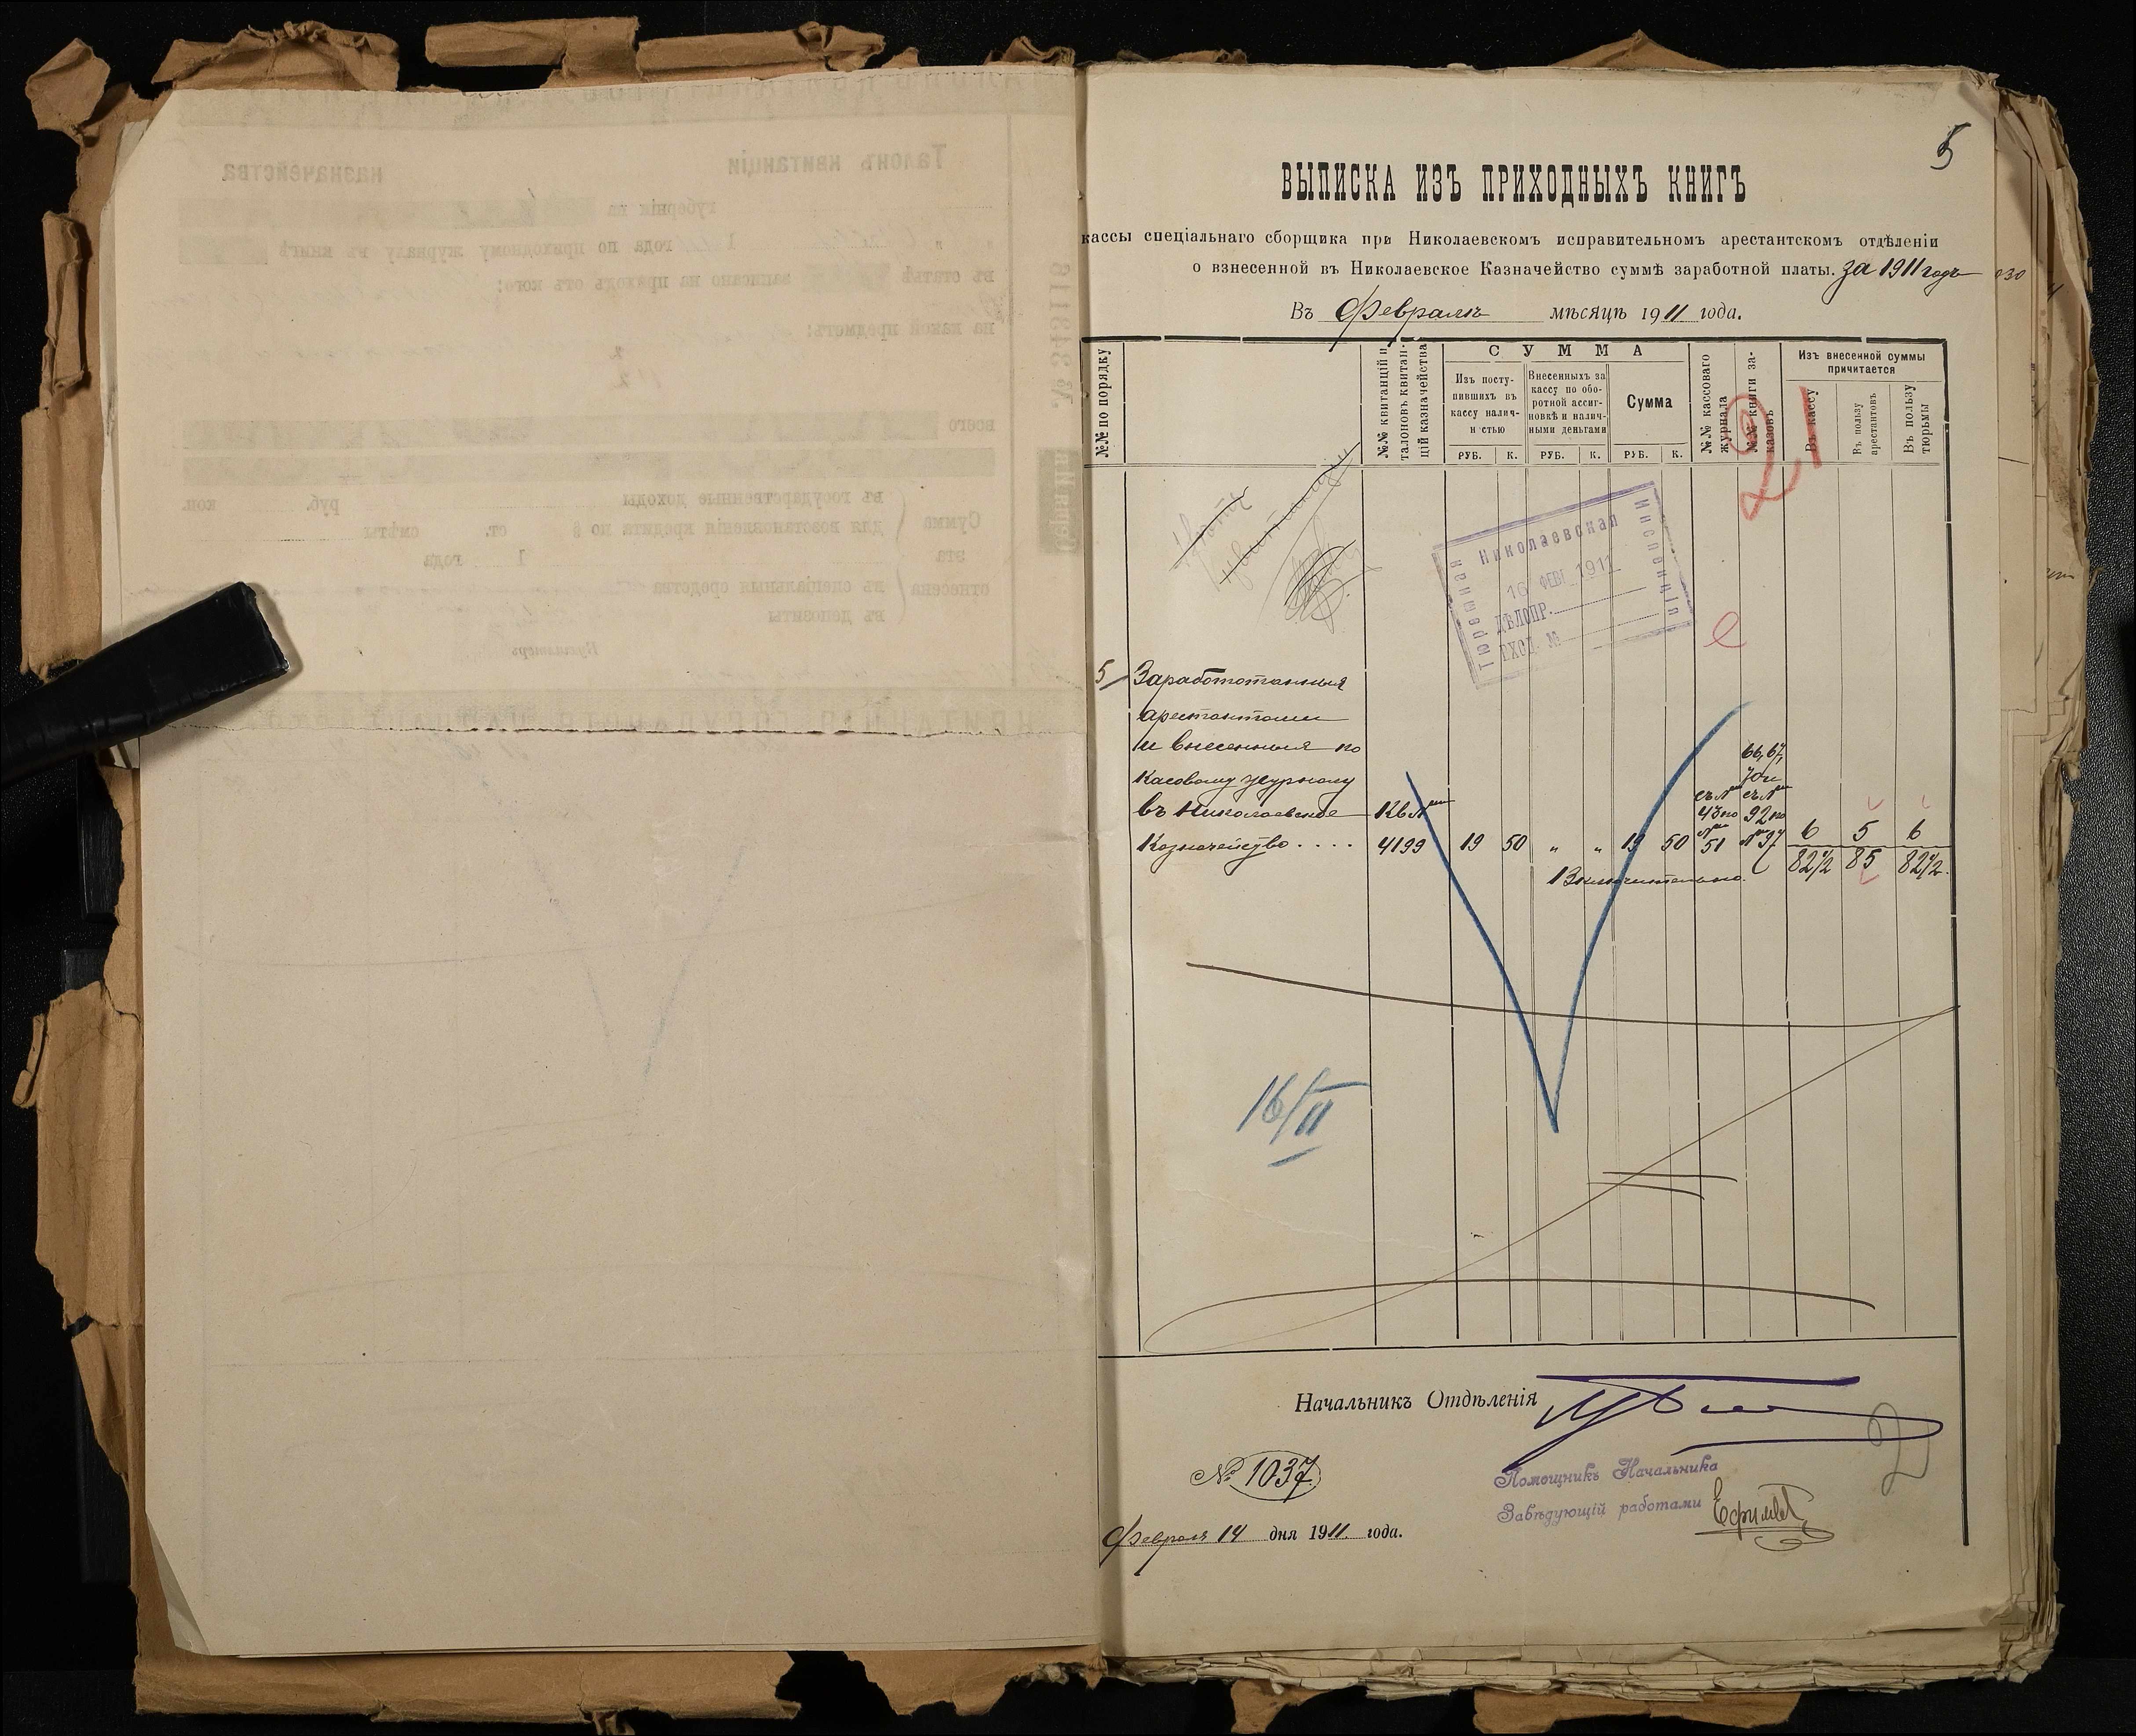 5
ВЫПИСКА ИЗЪ ПРИХОДНЫХЪ КНИГЪ
кассы спеціальнаго сборщика при Николаевскомъ исправительномъ арестантскомъ отдѣленіи
о взнесенной въ Николаевское Казначейство суммѣ заработной платы. за 1911 годъ
Въ Февралѣ мѣсяцѣ 1911 года.
№№ по порядку
№№ квитанцій и талоновъ квитанцій казначейства
СУММА
Изъ поступившихъ въ кассу наличностью
Внесенныхъ за кассу по оборотной ассигновкѣ и наличными деньгами
Сумма
РУБ. К. РУБ. К. РУБ. К.
№№ кассоваго журнала
№№ книги заказовъ
Изъ внесенной суммы причитается
Въ кассу
Въ пользу арестантовъ
Въ пользу тюрьмы
21
Николаевская
Тюремная
Инспекція
16 ФЕВ. 1911
ДѢЛОПР.
ВХОД. №
5 Заработанныя
арестантами
и внесенныя по
Касовому журналу 66, 67, 70 и
въ Николаевское Кв № съ № 43 по съ № 92 по
Казначейство.... 4199 19 50 " " 19 50 № 51 № 97 6 5 6
82½ 85 82½
Включительно.
16/II
Начальникъ Отдѣленія
№ 1037
Помощникъ Начальника
Завѣдующій работами Ефимов
Февраля 14 дня 1911 года.
Талонъ квитанціи казначейства
губерніи на
1 года по приходному журналу въ книгѣ
въ статьѣ записано на приходъ отъ кого:
на какой предметъ:
№ 343116
всего
Сумма эта отнесена
въ государственные доходы руб. коп.
для возстановленія кредита по § ст. смѣты
1 года
въ спеціальныя средства
въ депозиты